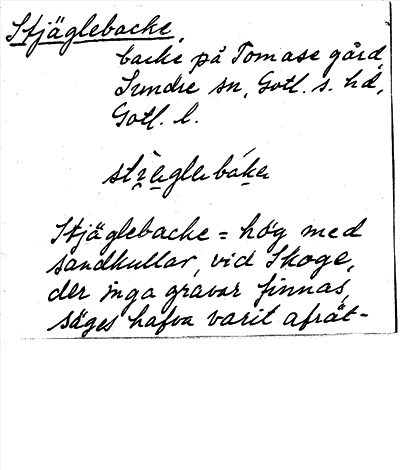 Stjäglebacke,
backe på Tomase gård,
Sundre sn, Gotl. s. hd,
Gotl. l.
Stjäglebacke = hög med
sandkullar, vid Skoge,
der inga gravar finnas,
säges hafva varit afrät-